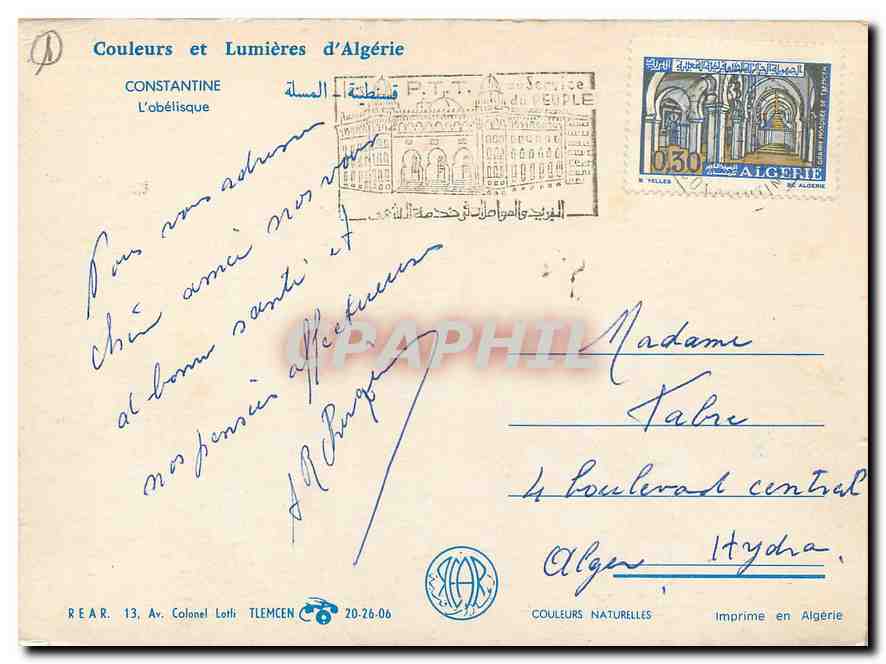 Couleurs et Lumières d'Algérie
CONSTANTINE
L'obélisque
قسنطينة - المسلة
P.T.T. au Service
du PEUPLE
البريد والمواصلات في خدمة الشعب
0,30 ALGERIE
GRANDE MOSQUEE DE TLEMCEN
B. YELLES
DE ALGERIE
Nous vous adressons
chère amie nos vœux
de bonne santé et
nos pensées affectueuses
CPAPHIL
Madame
Fabre
4 boulevard central
Alger Hydra
REAR
R E A R. 13, Av. Colonel Lotfi TLEMCEN 20-26-06
COULEURS NATURELLES
Imprime en Algérie